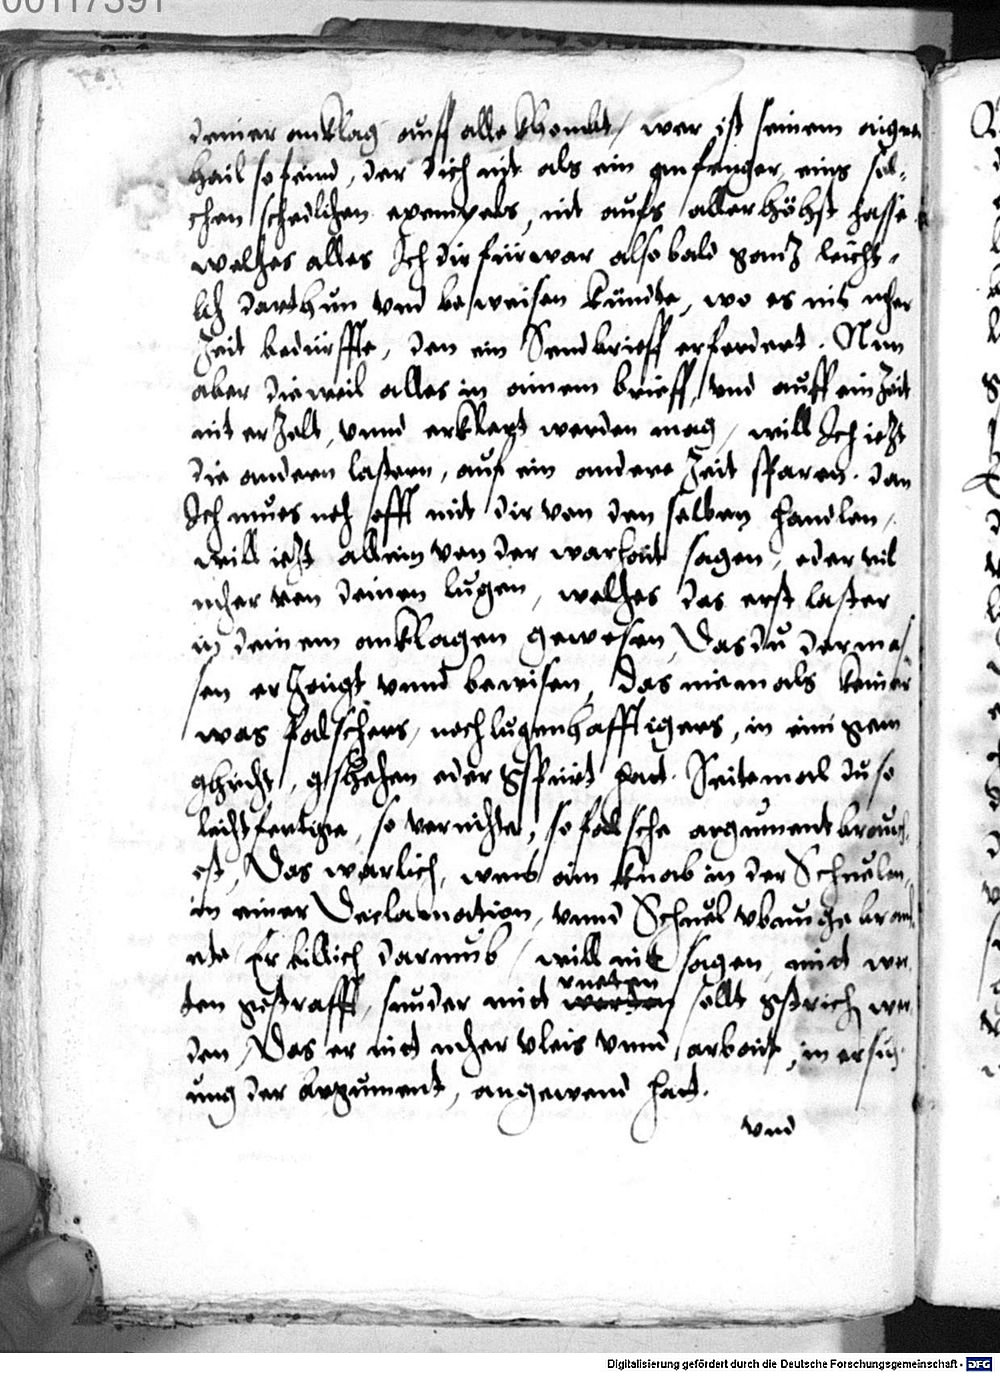 00117391
deiner anklag auff alle khombt, wer ist seinem aigne
hail so feind, der dich nit als ein anfenger, eins sol-
chen schedlichen exempels, nit aufs allerhöhst hasse
welches alles Ich dir fürwar alsobald gantz leicht-
lich darthun vnd beweisen kundte, wo es nit mher
Zeit bedürffte, den ein Sendbrieff erfordert. Nun
aber dieweil alles in ainem brieff, vnd auff ein Zeit
nit erZelt, vnnd erklert werden mag, will Ich ietzt
die andern lastern, auf ein andere Zeit sparen. dan
Ich mues noch offt mit dir von den selben handlen,
will ietzt allein von der warhait sagen, oder vil
mher von deinen lugen, welches das erst laster
in deinem anklagen gewesen, Das du dermas-
sen erZeugt vnnd bewisen, das niemals keiner
was falschers, noch lugenhafftigers, in einigem
gricht, gschehen oder gspürt hat. Seitemal du so
leichtfertige, so vernichte, so falsche argument brauch
est, Das warlich, wens ain knab in der Schuelen,
in einer Declamation, vnnd Schuel vbung brauch
ete, Er billich darumb, will nit sagen, mit wor
ten gestrafft, sunder mit worten sollt gstrichen wer
rueten
den, Das er nit mher vleis vnnd arbait, in ersuch
ung der Argument, angewend hat.
vnd
Digitalisierung gefördert durch die Deutsche Forschungsgemeinschaft - DFG